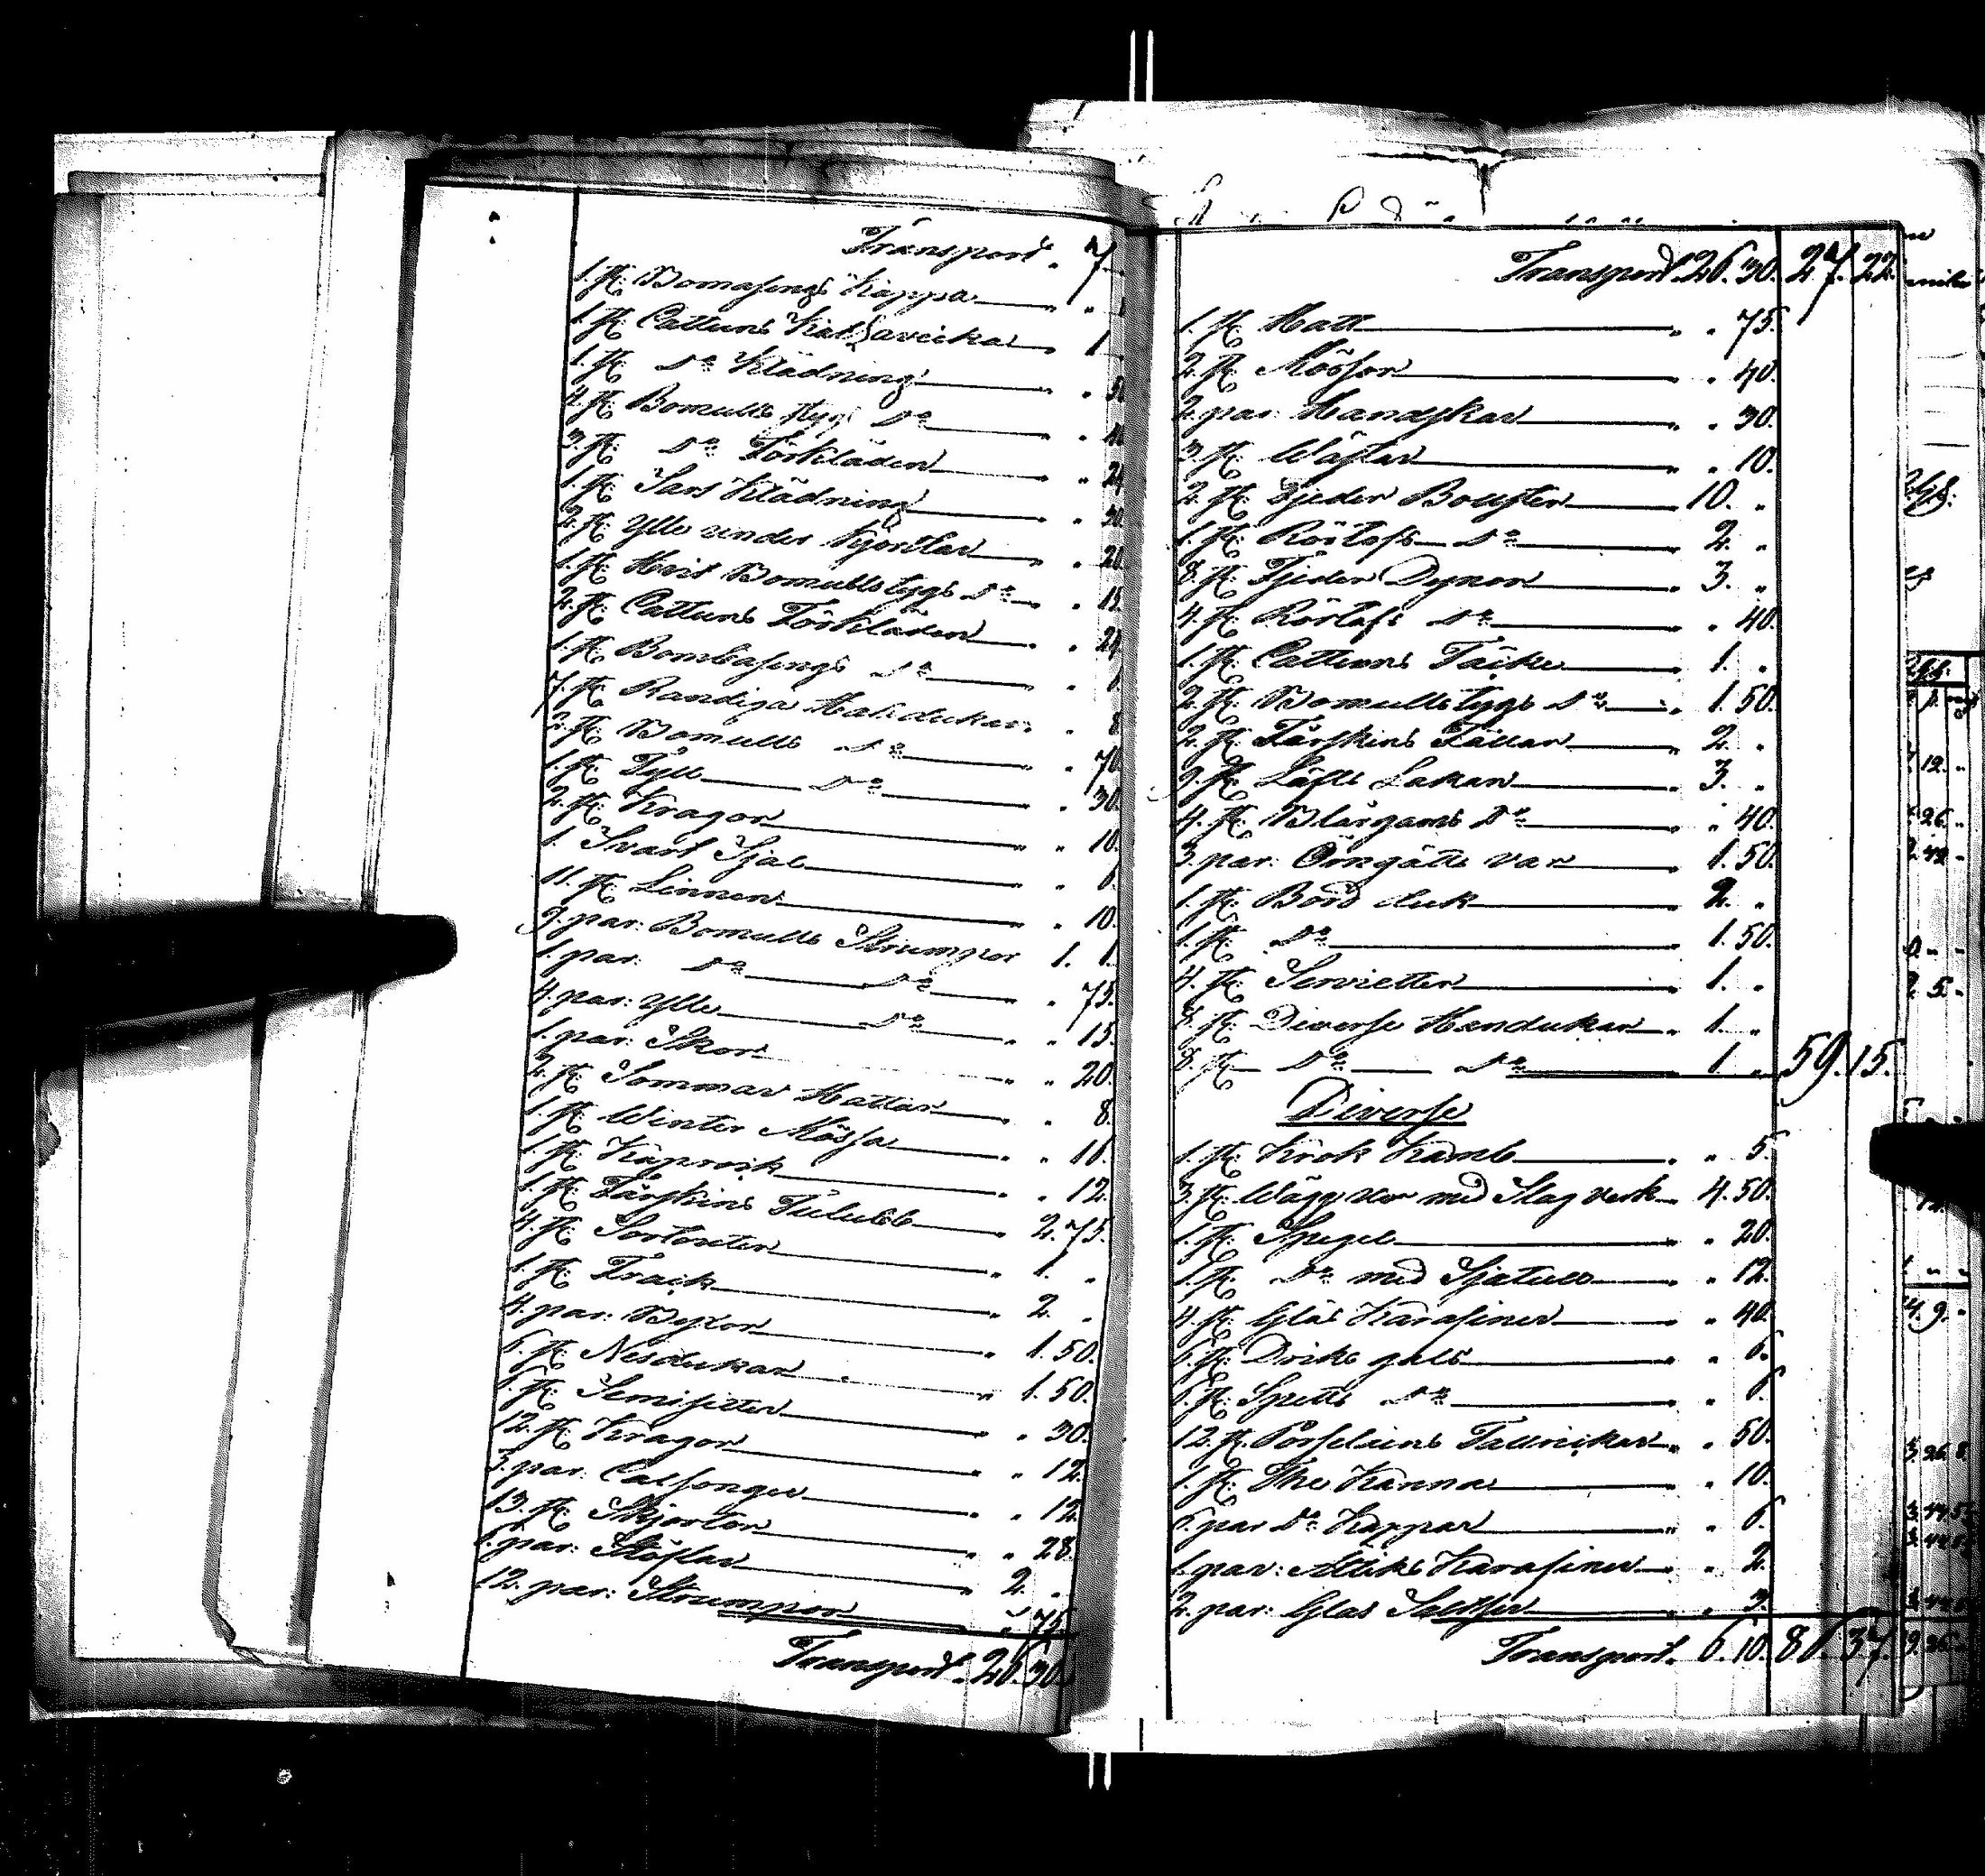 Transport " 7
1. st. Bomasengs Kappa "
1. st. Cattuns Katsaveika 1
1. st. Do Klädning " 5
4. st. Bomulls tygs Do "
3. st. Do Förkläden " 24
1. st. Sars Klädning " 20
2. st. Ylle under Kjortlar " 20
1. st. Hvit Bomullstygs Do " 15
2. st. Cattuns Förkläden " 24
1. st. Bombasengs Do " 6
7. st. Randiga Halsdukar " 8
2. st. Bomulls Do " 70.
1. st. Tyll Do " 30.
2. st. Kragor " " 10.
1. Svart Sjal " 6
11. st. Linnen " 10.
9. par: Bomulls Strumpor 1. 1
1. par: Do Do " 75.
4. par: Ylle Do " " 15.
1. par: Skor " " 20.
2. st. Sommar Hattar " 8.
1. st. Winter Mössa " " 16.
1. st. Kaprock " " 12.
1. st. Fårskins Tulubb 2. 75.
4. st. Sortouter " 1. "
1. st. Frack " 2. "
4. par: Byxor " 1. 50.
6. st. Nesdukar " 1. 50.
6. st. Semisetter " 30.
12. st. Kragor " " 12.
3. par: Calsonger " " 12.
13. st. Skjortor " " 28.
6. par: Stöflar " 2. "
12. par: Strumpor " 75.
Transport. 26 30.
Transport 26. 30. 27. 22.
1. st. Hatt " " 75.
2. st. Mössor " " 40.
2. par: Handskar " " 30.
3. st. Wästar " " 10.
2. st. Fjeder Bolster 10. "
1. st. Rörtofs Do 2. "
8. st. Fjeder Dynor 3. "
4. st. Rörtofs Do " 40.
1. st. Cattuns Täcke 1. "
2. st. Bomullstygs Do 1. 50.
2. st. Fårskins Fällar 2. "
9. st. Läfts Lakan 3. "
4. st. Blårgarns Do " 40.
3. par: Örngåtts var 1. 50.
1. st. Bord duk 2. "
1. st. Do 1. 50.
4. st. Servietter 1. "
8. st. Diverse Handukar 1. "
8. st. Do Do 1. " 59. 15.
Diverse
1. st. Krok Kamb " " 5.
3. st. Wägg Ur med Slag verk 4. 50.
1. st. Spegel " " 20.
1. st. Do med Sjatull " " 12.
4. st. Glas Karafiner " " 40.
6. st. Driks glas " " 6.
6. st. Spetts Do " " 6
12. st. Porselains Tallrickar " " 50.
1. st. The Kanna " " 10.
6. par Do Koppar " " 6.
1. par: Ättiks Karafiner " " 2.
2. par: Glas Saltser " " 3.
Transport. 6. 10. 86. 37.